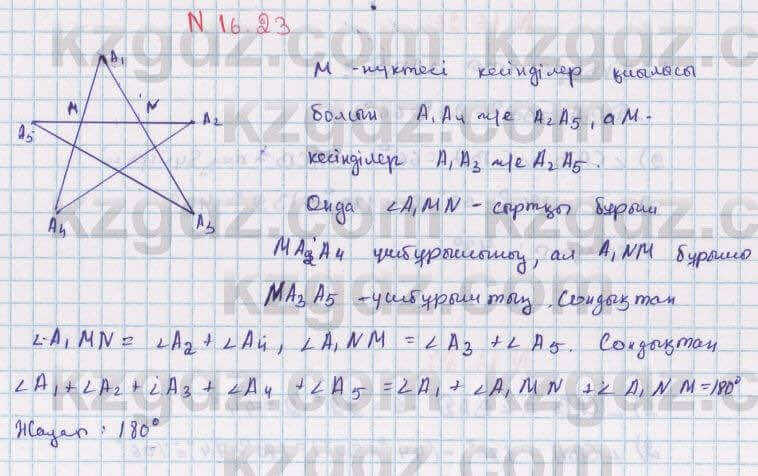 N 16.23
A₁
M N
A₅ A₂
A₄ A₃
M - нүктесі кесінділер қиылысы
болсын A₁A₄ және A₂A₅, а M -
кесінділер A₁A₃ және A₂A₅.
Онда ∠A₁MN - сыртқы бұрыш
MA₂A₄ үшбұрышының, ал A₁NM бұрышы
MA₃A₅ - үшбұрыштың. Сондықтан
∠A₁MN = ∠A₂ + ∠A₄, ∠A₁NM = ∠A₃ + ∠A₅. Сондықтан
∠A₁ + ∠A₂ + ∠A₃ + ∠A₄ + ∠A₅ = ∠A₁ + ∠A₁MN + ∠A₁NM = 180°
Жауап: 180°
kzgdz.com